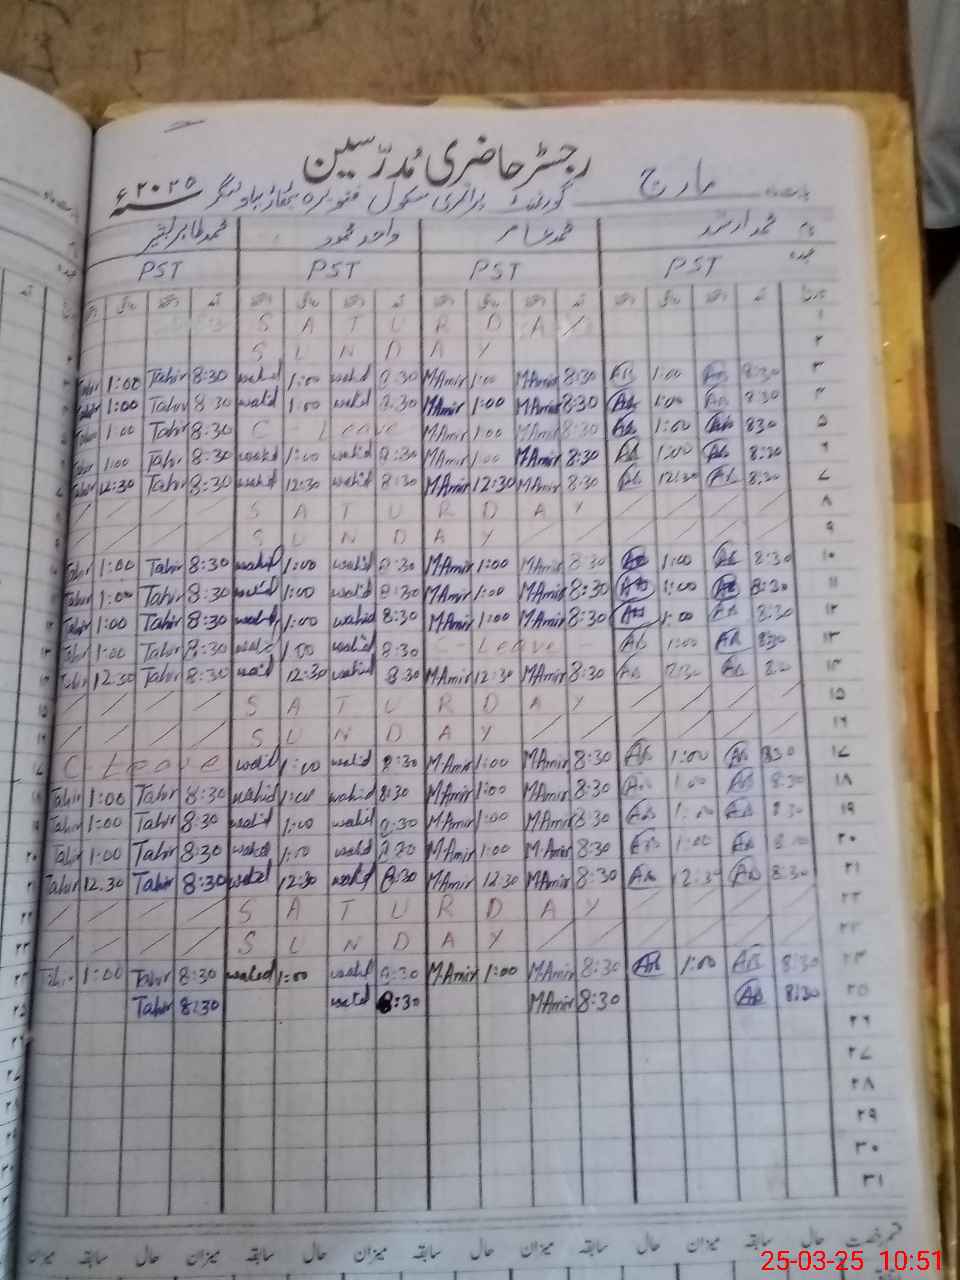 رجسٹر حاضری مُدرّسین
بابت ماہ مارچ گورنمنٹ پرائمری سکول ۲۰۲۵ء
نام محمد ارشد محمد عامر واحد محمود محمد طاہر بشیر
عہدہ PST PST PST PST
۱ SATURDAY
۲ SUNDAY
۳ 8:30 AB 1:00 AB 8:30 MAmir 1:00 MAmir 8:30 wahid 1:00 wahid 8:30 Tahir 1:00 Tahir
۴ 8:30 AB 1:00 AB 8:30 MAmir 1:00 MAmir 8:30 wahid 1:00 wahid 8:30 Tahir 1:00 Tahir
۵ 830 AB 1:00 AB 8:30 MAmir 1:00 MAmir C Leave 8:30 Tahir 1:00 Tahir
۶ 8:30 AB 1:00 AB 8:30 MAmir 1:00 MAmir 8:30 wahid 1:00 wahid 8:30 Tahir 1:00 Tahir
۷ 8:30 AB 12:30 AB 8:30 MAmir 12:30 MAmir 8:30 wahid 12:30 wahid 8:30 Tahir 12:30 Tahir
۸ SATURDAY
۹ SUNDAY
۱۰ 8:30 AB 1:00 AB 8:30 MAmir 1:00 MAmir 8:30 wahid 1:00 wahid 8:30 Tahir 1:00 Tahir
۱۱ 8:30 AB 1:00 AB 8:30 MAmir 1:00 MAmir 8:30 wahid 1:00 wahid 8:30 Tahir 1:00 Tahir
۱۲ 8:30 AB 1:00 AB 8:30 MAmir 1:00 MAmir 8:30 wahid 1:00 wahid 8:30 Tahir 1:00 Tahir
۱۳ 8:30 AB 1:00 AB C-Leave- 8:30 wahid 1:00 wahid 8:30 Tahir 1:00 Tahir
۱۴ AB AB 8:30 MAmir 12:30 MAmir 8:30 wahid 12:30 wahid 8:30 Tahir 12.30 Tahir
۱۵ SATURDAY
۱۶ SUNDAY
۱۷ 830 AB 1:00 AB 8:30 MAmir 1:00 MAmir 8:30 wahid 1:00 wahid C-Leave
۱۸ 8:30 AB 1:00 AB 8:30 MAmir 1:00 MAmir 8:30 wahid 1:00 wahid 8:30 Tahir 1:00 Tahir
۱۹ 8:30 AB 1:00 AB 8:30 MAmir 1:00 MAmir 8:30 wahid 1:00 wahid 8:30 Tahir 1:00 Tahir
۲۰ AB 1:00 AB 8:30 MAmir 1:00 MAmir 8:30 wahid 1:00 wahid 8:30 Tahir 1:00 Tahir
۲۱ 8:30 AB 12:30 AB 8:30 MAmir 12:30 MAmir 8:30 wahid 12:30 wahid 8:30 Tahir 12.30 Tahir
۲۲ SATURDAY
۲۳ SUNDAY
۲۴ 8:30 AB 1:00 AB 8:30 MAmir 1:00 MAmir 8:30 wahid 1:00 wahid 8:30 Tahir 1:00 Tahir
۲۵ 8:30 AB 8:30 MAmir 8:30 wahid 8:30 Tahir
۲۶
۲۷
۲۸
۲۹
۳۰
۳۱
قسم رخصت حال سابقہ میزان حال سابقہ میزان حال سابقہ میزان حال سابقہ میزان
25-03-25 10:51